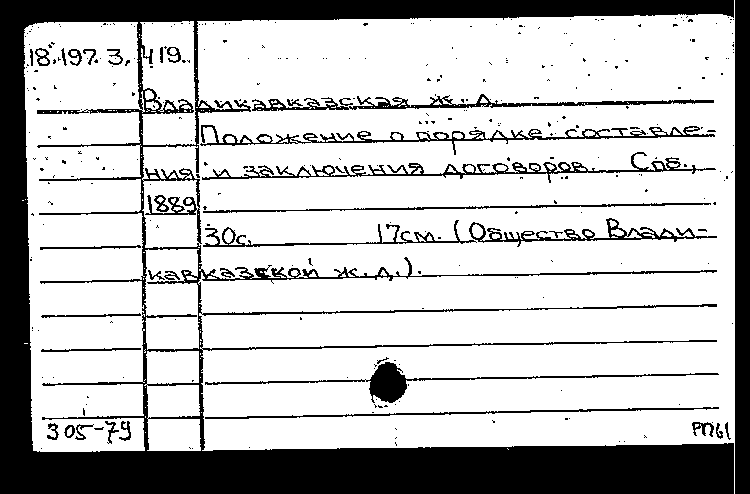 18.197.3.419.
Владикавказская ж.д.
Положение о порядке составле-
ния и заключения договоров. Спб.,
1889.
30с. 17см. (Общество Влади-
кавказской ж.д.).
305-79 РП61